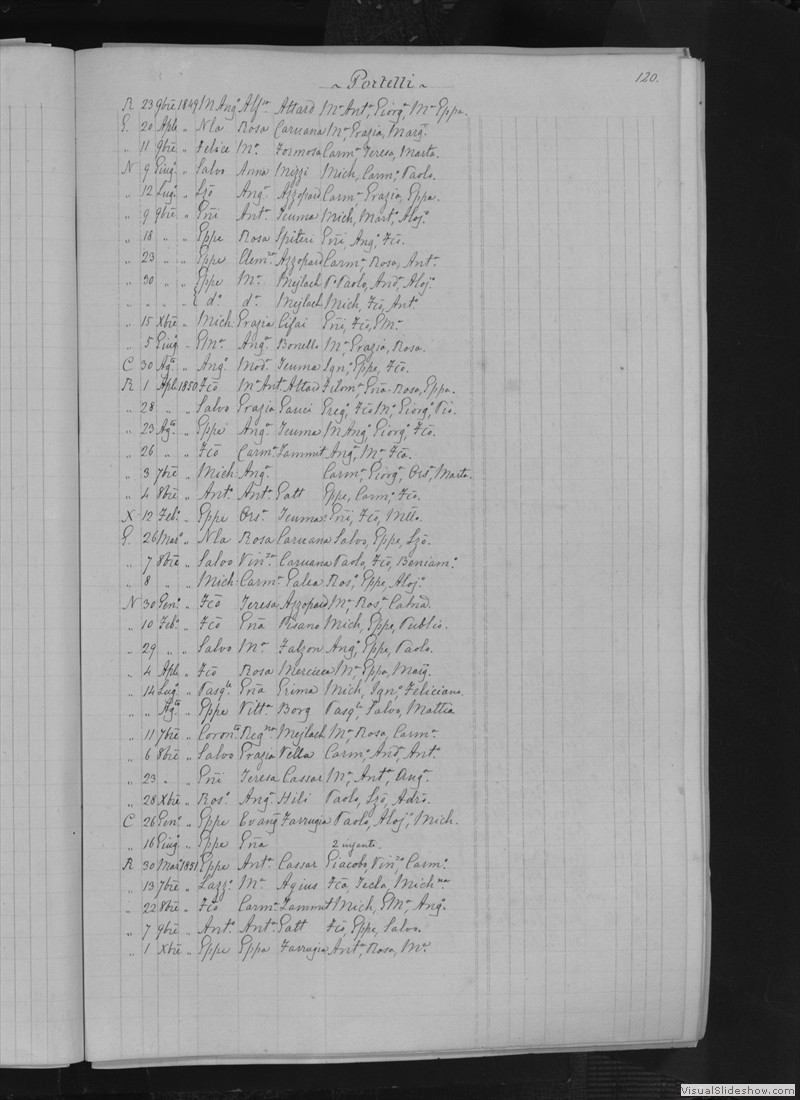 ~ Portelli ~
120.
R 23 9bre 1849 M Angᵒ Alfˢᵃ Attard Mᵃ Antᵃ, Giorgᵃ, Mᵃ Eppa.
G. 20 Aple „ Nla Rosa Caruana Mᵃ, Grazia, Margᵗᵃ
„ 11 9bre „ Felice Mᵃ Formosa Carmᵃ, Teresa, Marta.
N 9 Giugᵒ „ Salvo Anna Mizzi Mich, Carmᵒ, Paolo.
„ 12 Lugᵒ „ Lzō Angᵃ Azzopard Carmᵃ, Grazia, Eppa.
„ 9 9bre „ Gñi Antᵃ Teuma Mich, Martᵒ, Alojᵒ
„ 18 „ „ Eppe Rosa Spiteri Gñi, Angᵒ, Fcō.
„ 23 „ „ Eppe Clemᶻᵃ Azzopard Carmᵃ, Rosa, Antᵃ
„ 30 „ „ Eppe Mᵃ Mejlach Pᵒ Paolo, Andᵃ, Alojᵒ
„ „ „ „ dᵒ dᵃ Mejlach Mich, Fcō, Antᵒ
„ 15 Xbre „ Mich: Grazia Cifai Gñi, Fcō, EMˡ
„ 5 Giugᵒ „ EMˡ Angᵃ Bonello Mᵃ, Grazia, Rosa.
C 30 Agᵗᵒ „ Angᵒ Modᵃ Teuma Ignᵒ, Eppe, Fcō.
R 1 Aple 1850 Fcō Mᵃ Antᵃ Attard Filomᵃ, Gña, Rosa, Eppa.
„ 28 „ „ Salvo Grazia Gauci Gregᵒ, Fcō Mᵃ, Giorgᵒ, Pio.
„ 23 Agᵗᵒ „ Eppe Angᵃ Teuma M Angᵒ, Giorgᵒ, Fcō.
„ 26 „ „ Fcō Carmᵃ Zammut Angᵃ, Mᵃ, Fcō.
„ 3 7bre „ Mich: Angᵃ Carmᵃ, Giorgᵃ, Orsᵃ, Marta.
„ 4 8bre „ Antᵒ Antᵃ Gatt Eppe, Carmᵒ, Fcō.
X 12 Febᵒ „ Eppe Orsᵃ Teuma Gñi, Fcō, Mtto.
G. 26 Marᵒ „ Nla Rosa Caruana Salvo, Eppe, Lzō.
„ 7 8bre „ Salvo Vinᶻᵃ Caruana Paolo, Fcō, Beniamᵒ
„ 8 „ „ Mich: Carmᵃ Galea Rosᵒ, Eppe, Alojᵒ
N 30 Genᵒ „ Fcō Teresa Azzopard Mᵃ, Rosᵃ, Catña.
„ 10 Febᵒ „ Fcō Gña Pisano Mich, Eppe, Publio.
„ 29 „ „ Salvo Mᵃ Falzon Angᵒ, Eppe, Paolo.
„ 4 Aple „ Fcō Rosa Mercieca Mᵃ, Eppa, Margᵗᵃ
„ 14 Lugᵒ „ Pasqˡᵉ Gña Grima Mich, Ignᵒ, Feliciano.
„ „ Agᵗᵒ „ Eppe Vittᵃ Borg Pasqˡᵉ, Salvo, Mattia
„ 11 7bre „ Coronᵗᵒ Regⁿᵃ Mejlach Mᵃ Rosa, Carmᵃ
„ 6 8bre „ Salvo Grazia Vella Carmᵒ, Andᵃ, Antᵒ
„ 23 „ Gñi Teresa Cassar Mᵃ, Antᵃ, Angᵃ
„ 28 Xbre „ Rosᵒ Angᵃ Hili Paolo, Lzō, Adrō.
C 26 Genᵒ „ Eppe Evangᵗᵃ Farrugia Paolo, Alojᵒ, Mich.
„ 16 Giugᵒ „ Eppe Gña 2 ingante.
R 30 Marᵒ 1851 Eppe Antᵃ Cassar Giacobo, Vinᶻᵒ, Carmᵒ
„ 13 7bre „ Lazzᵒ Mᵃ Agius Fcā, Tecla, Michⁿᵃ
„ 22 8bre „ Fcō Carmᵃ Zammut Mich, EMˡ, Angᵒ
„ 7 9bre „ Antᵒ Antᵃ Gatt Fcō, Eppe, Salvo.
„ 1 Xbre „ Eppe Eppa Farrugia Antᵃ, Rosa, Mᵃ
VisualSlideshow.com